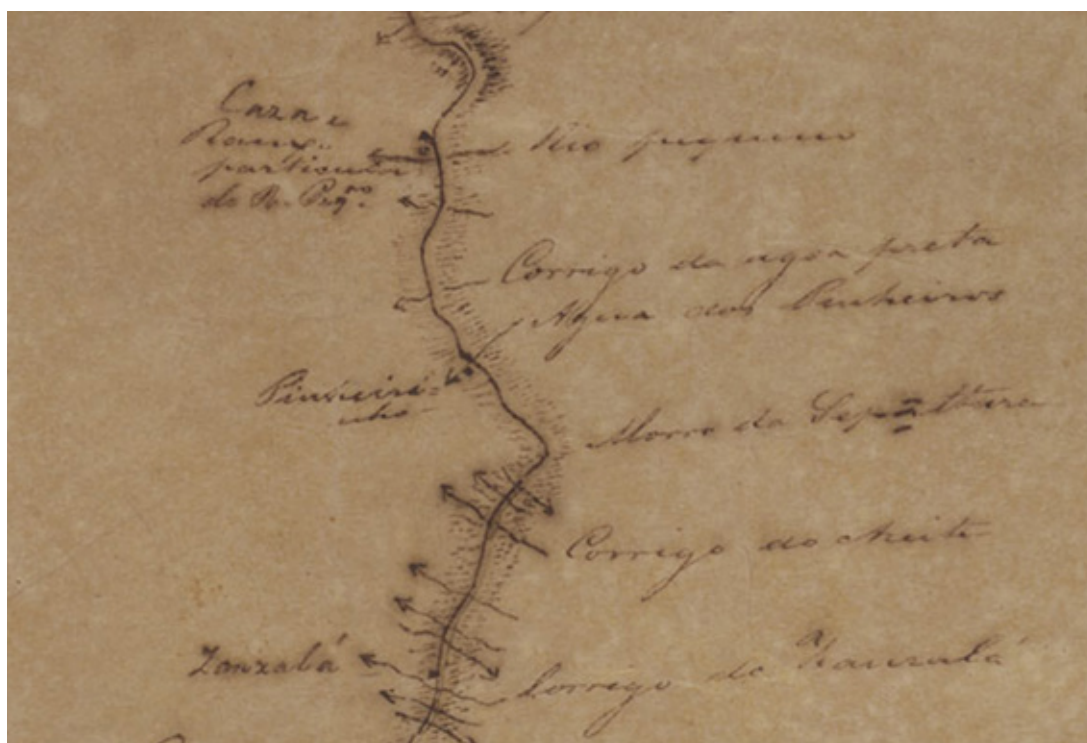 Caza e
Ranxo
particular
do R. Pqno.
Rio pequeno
Corrigo da agoa preta
Agua dos Pinheiros
Pinheiri-
nho
Morro da Sepultura
Corrigo do Azeite
Zanzalá
Corrego do Zanzalá